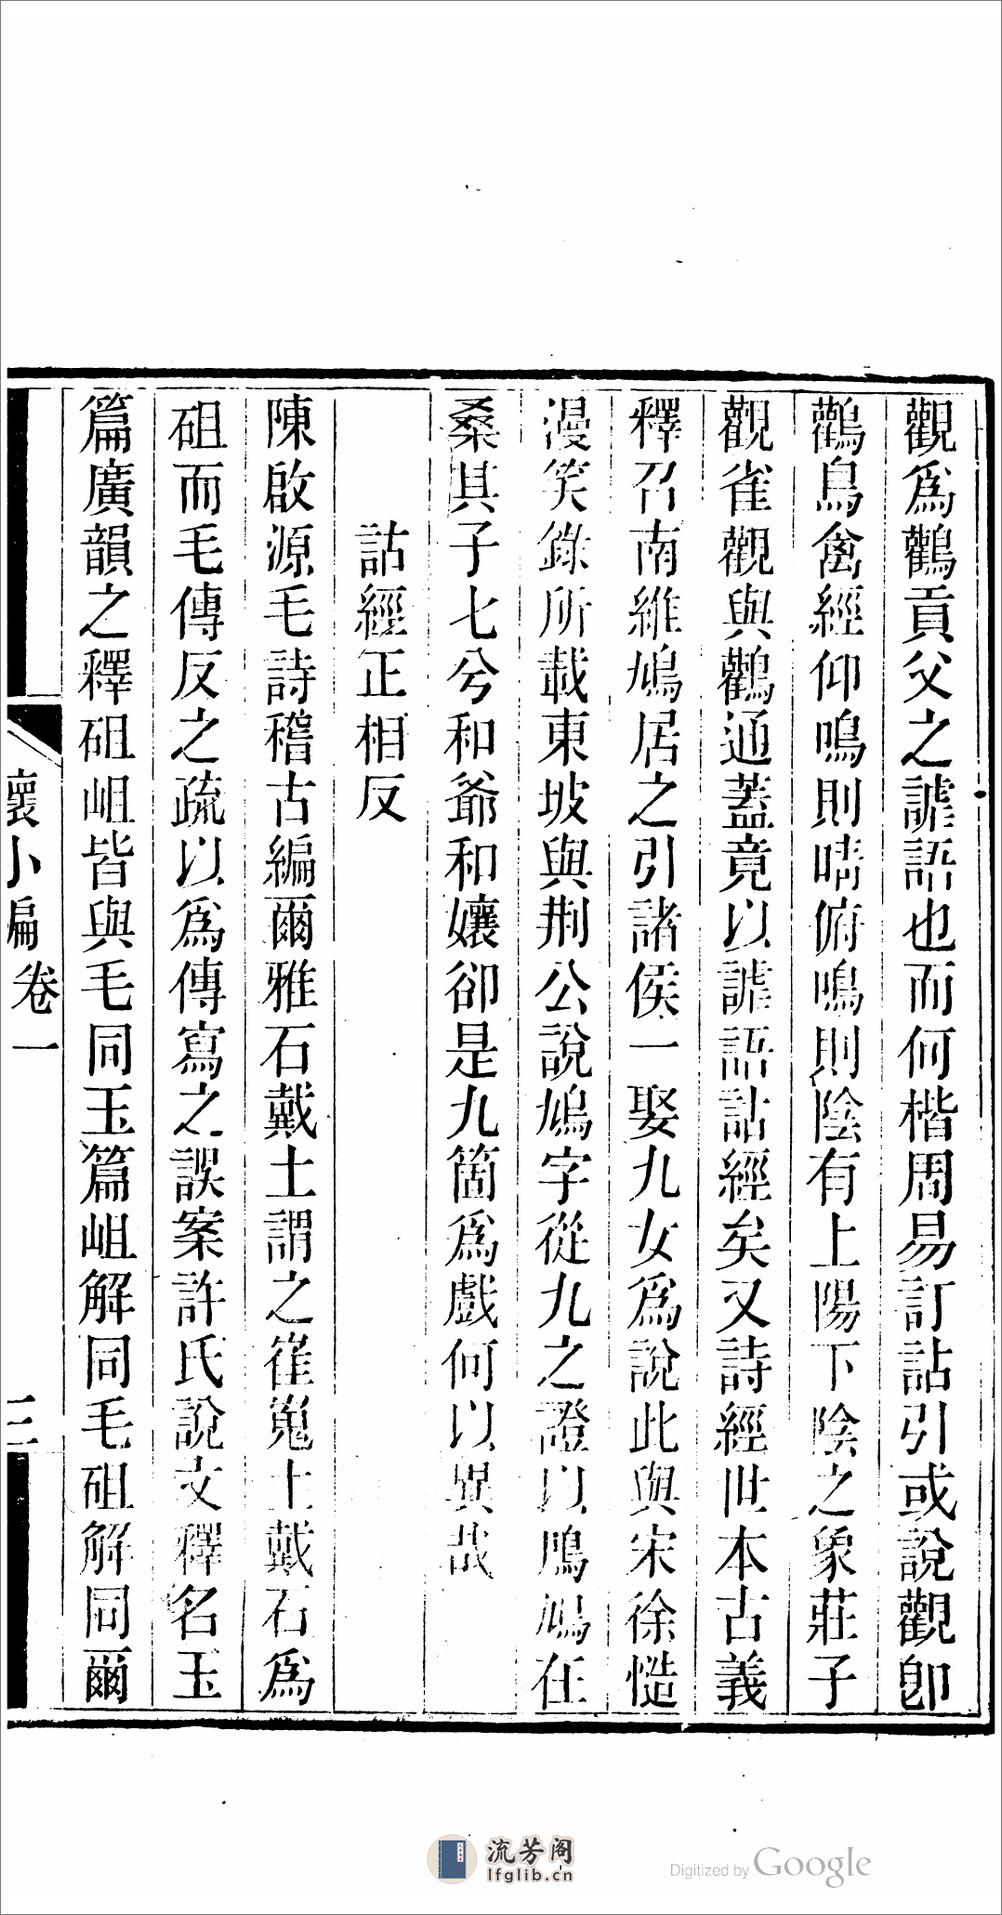 觀爲鸛貢父之謔語也而何楷周易訂詁引或說觀卽
鸛鳥禽經仰鳴則晴俯鳴則陰有上陽下陰之象莊子
觀雀觀與鸛通蓋竟以謔語詁經矣又詩經世本古義
釋召南維鳩居之引諸侯一娶九女爲說此與宋徐慥
漫笑錄所載東坡與荆公說鳩字從九之證以鳲鳩在
桑其子七兮和爺和孃卻是九箇爲戲何以異哉
詁經正相反
陳啟源毛詩稽古編爾雅石戴土謂之崔嵬土戴石爲
砠而毛傳反之疏以爲傳寫之誤案許氏說文釋名玉
篇廣韻之釋砠岨皆與毛同玉篇岨解同毛砠解同爾
小扁卷一
三
流芳阁
lfglib.cn
Digitized by Google